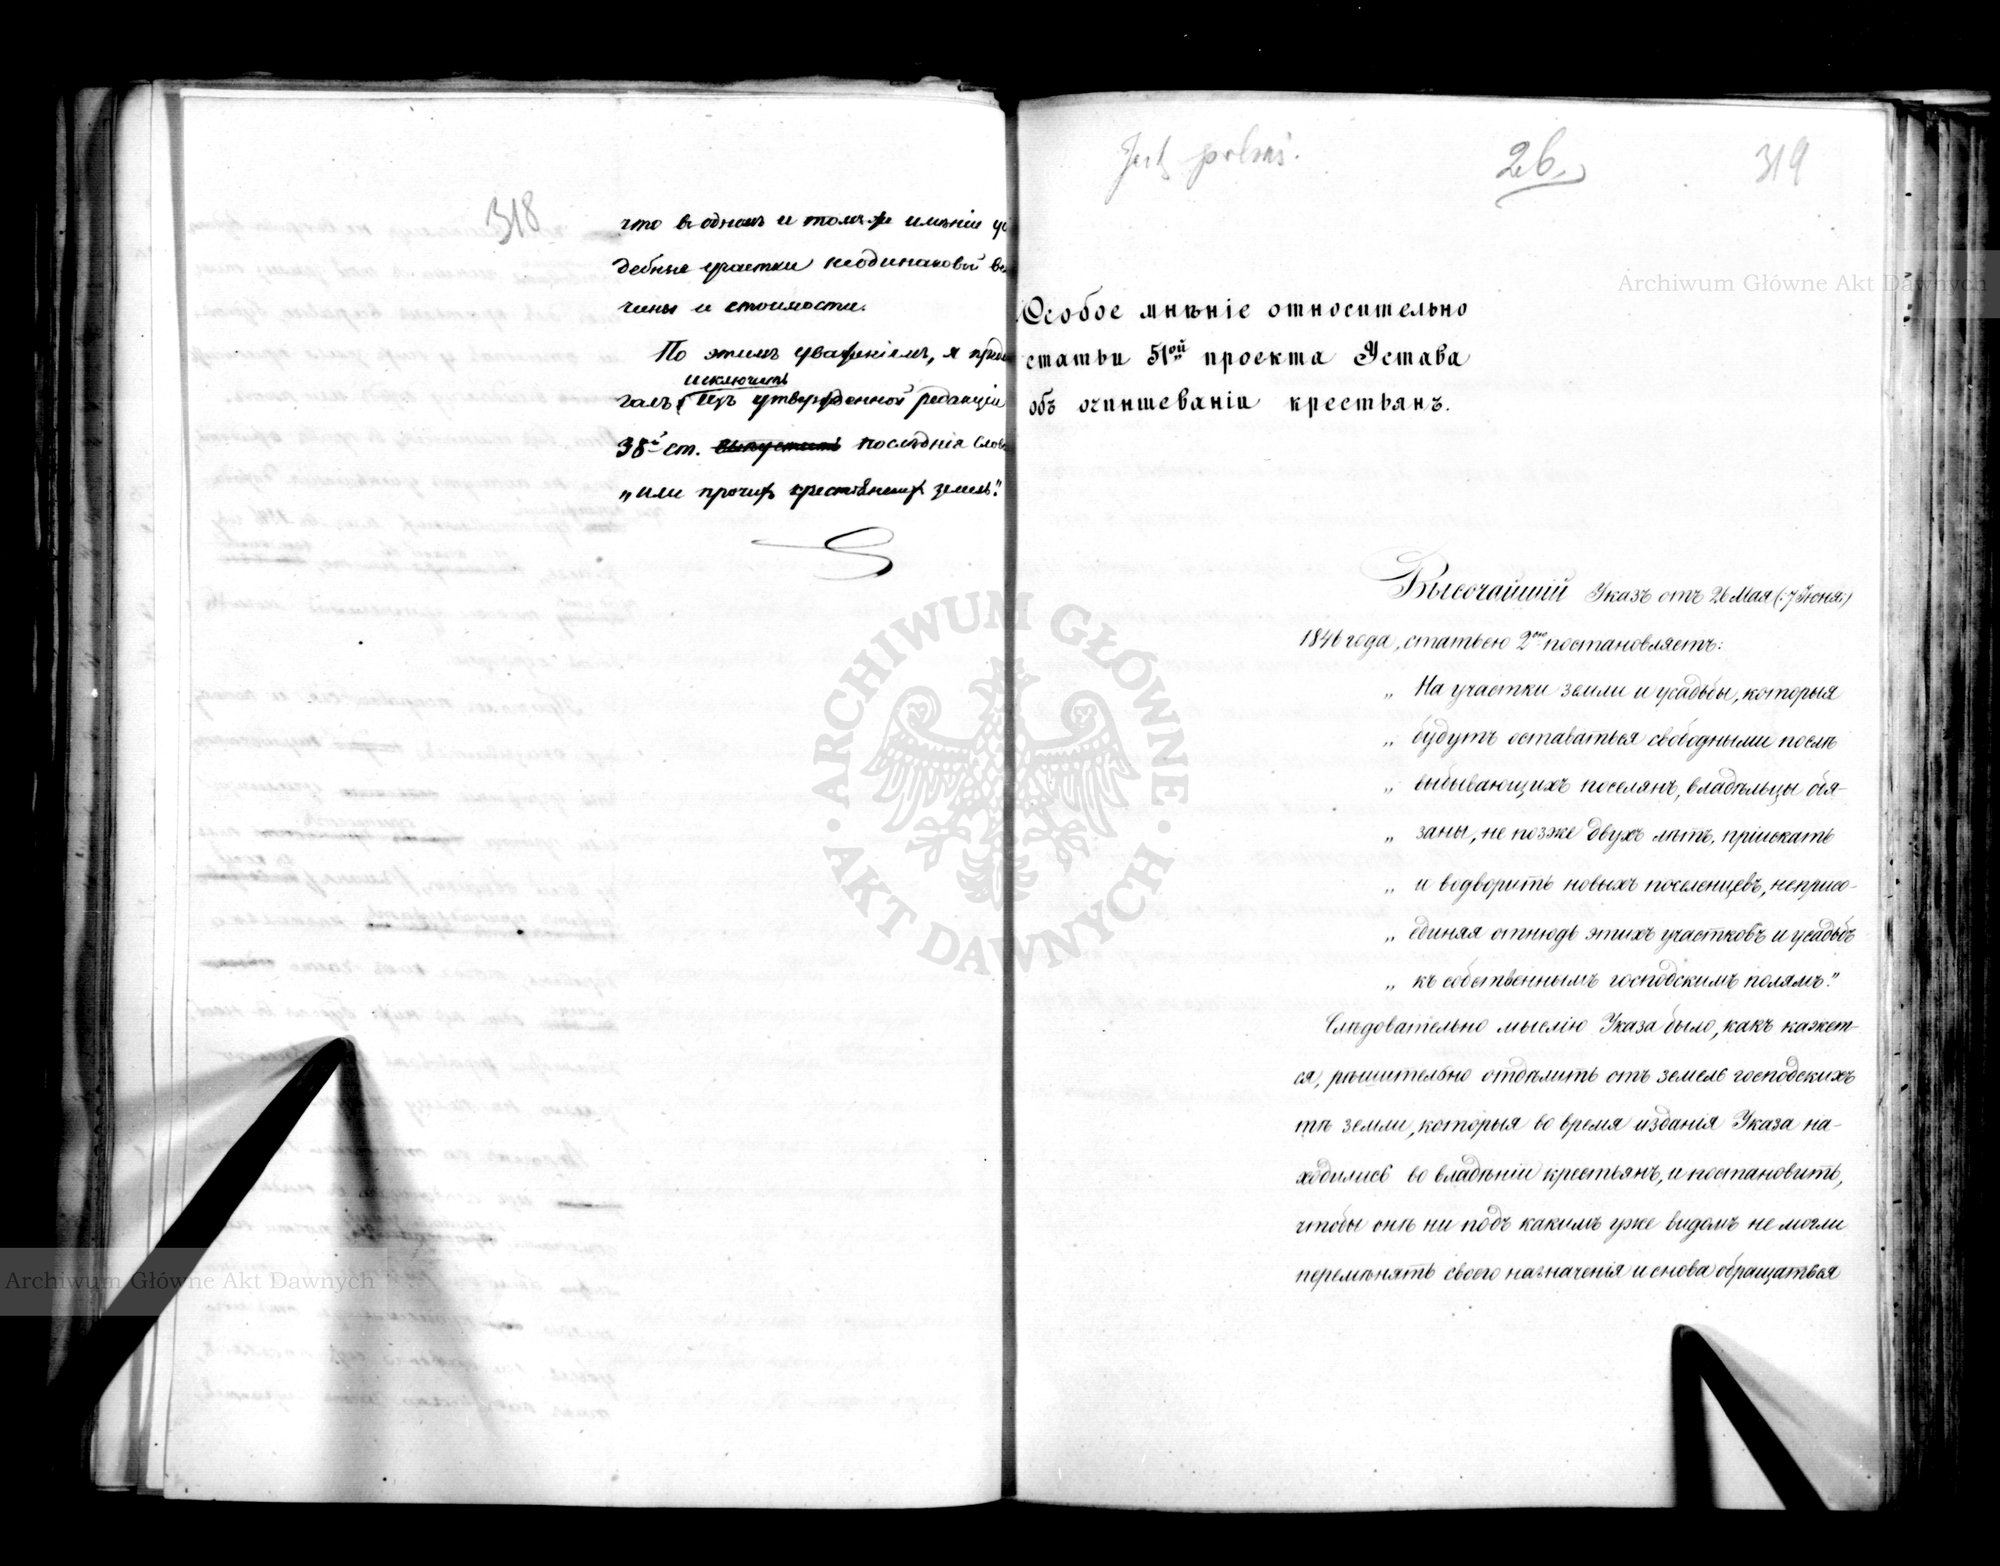 318
что въ одномъ и томъ же имѣніи у
дебные участки неодинаковой ве
чины и стоимости.
По этимъ уваженіямъ, я пред
исключить
галъ изъ утвержденной редакціи
38й ст. выпустить послѣднія слов
„или прочихъ крестьянскихъ земель."
26.
319
Особое мнѣніе относительно
статьи 51ой проекта Устава
объ очиншеваніи крестьянъ.
Высочайшій Указъ отъ 26 Мая (:7 Іюня:)
1846 года, статьею 2ою постановляетъ:
„ На участки земли и усадьбы, которыя
„ будутъ оставаться свободными послѣ
„ выбывающихъ поселянъ, владѣльцы обя-
„ заны, не позже двухъ лѣтъ, пріискать
„ и водворить новыхъ поселенцевъ, неприсо-
„ единяя отнюдь этихъ участковъ и усадьбъ
„ къ собственнымъ господскимъ полямъ."
Слѣдовательно мыслію Указа было, какъ кажет-
ся, рѣшительно отдѣлить отъ земель господскихъ
тѣ земли, которыя во время изданія Указа на-
ходились во владѣніи крестьянъ, и постановить,
чтобы онѣ ни подъ какимъ уже видомъ не могли
перемѣнять своего назначенія и снова обращаться
Archiwum Główne Akt Dawnych
ARCHIWUM GŁÓWNE
AKT DAWNYCH
Archiwum Główne Akt Dawnych